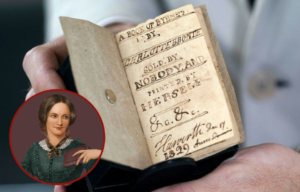 A BOOK OF RYHMES
BY
CHARLOTTE BRONTE
SOLD BY
NOBODY AND
PRINTED BY
HERSELF
&c. &c.
Haworth Dec 17
1829